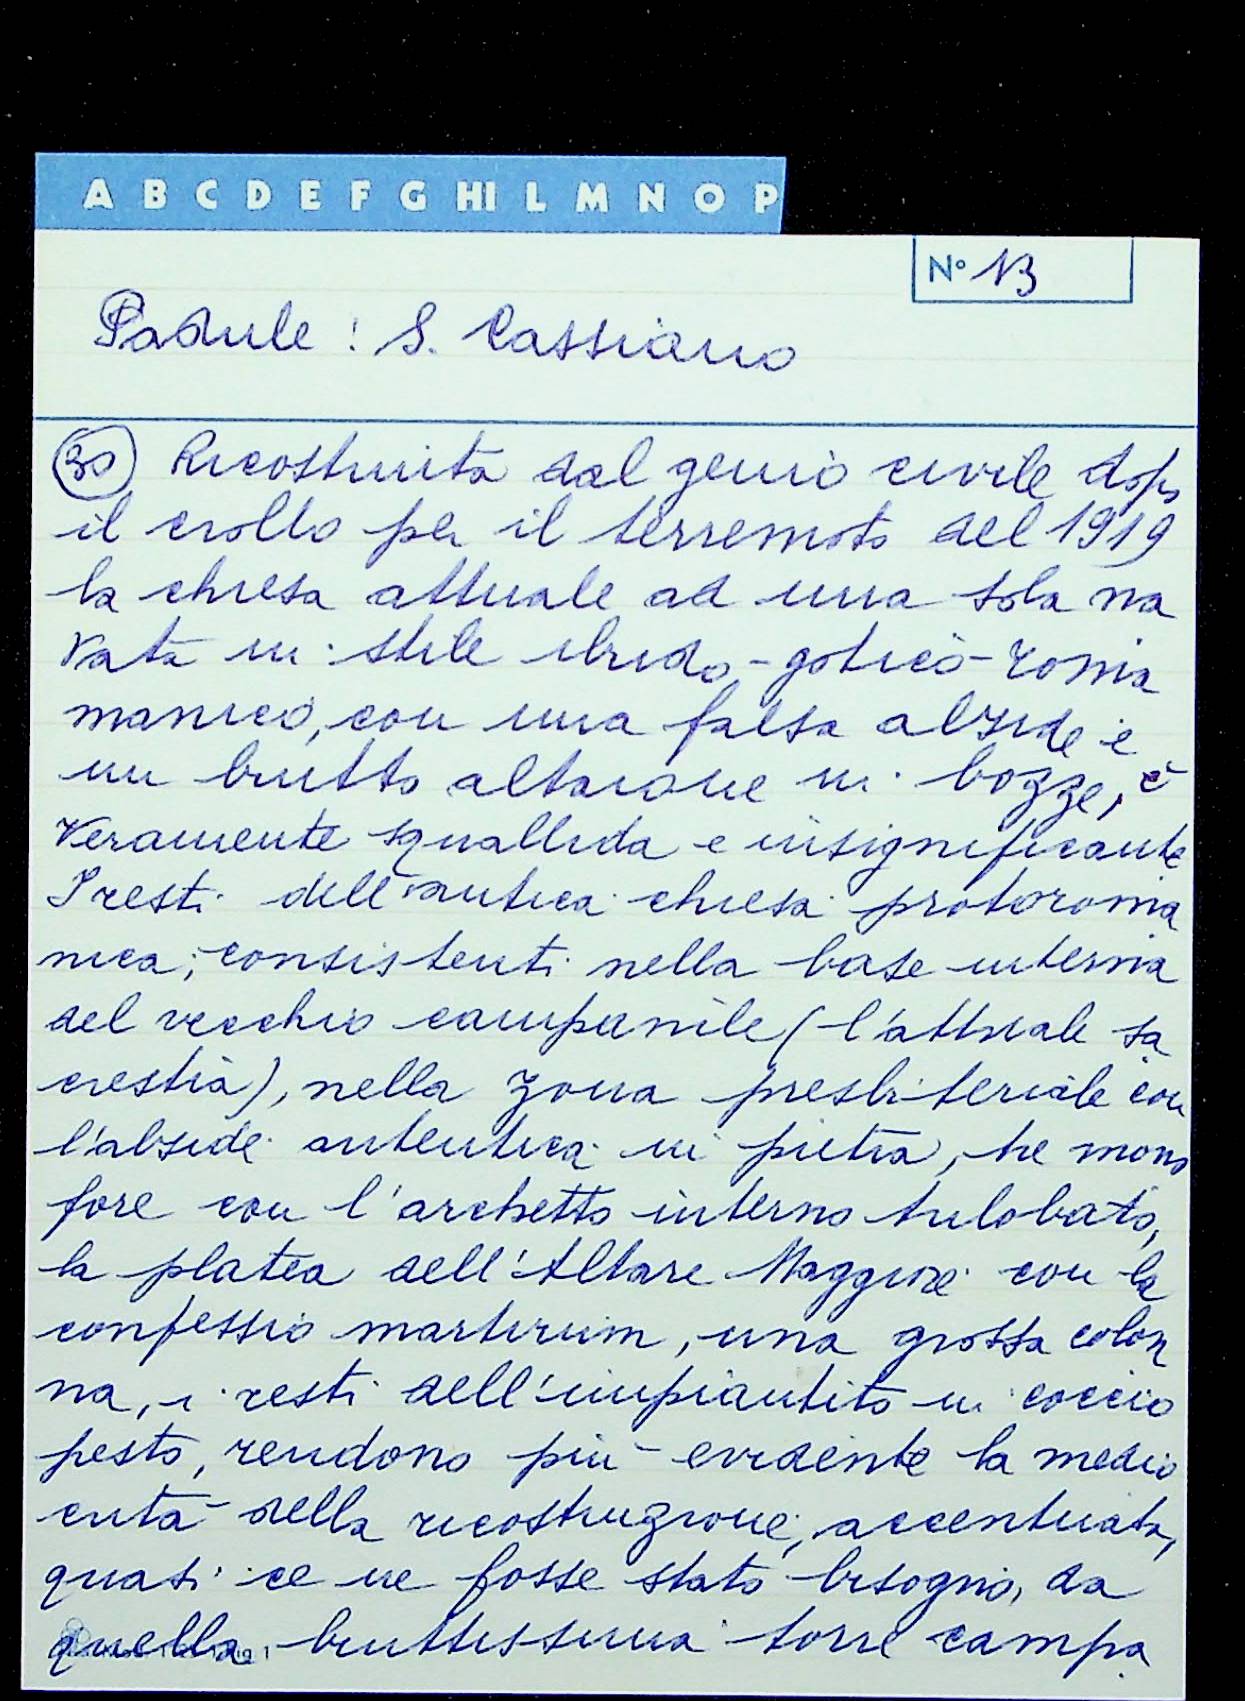 A B C D E F G HI L M N O P
N° 13
Padule: S. Cassiano
30 Ricostruita dal genio civile dopo
il crollo per il terremoto del 1919
la chiesa attuale ad una sola na
vata in stile ibrido-gotico-roma
manico, con una falsa abside e
un brutto altarone in bozze, è
veramente squallida e insignificante
I resti dell'antica chiesa protoroma
nica, consistenti nella base interna
del vecchio campanile (l'attuale sa
crestia), nella zona presbiteriale con
l'abside autentica in pietra, tre mono
fore con l'archetto interno trilobato,
la platea dell'Altare Maggiore con la
confessio martirum, una grossa colon
na, i resti dell'impiantito in coccio
pesto, rendono più evidente la medio
crità della ricostruzione, accentuata,
quasi ce ne fosse stato bisogno, da
quella bruttissima torre campa